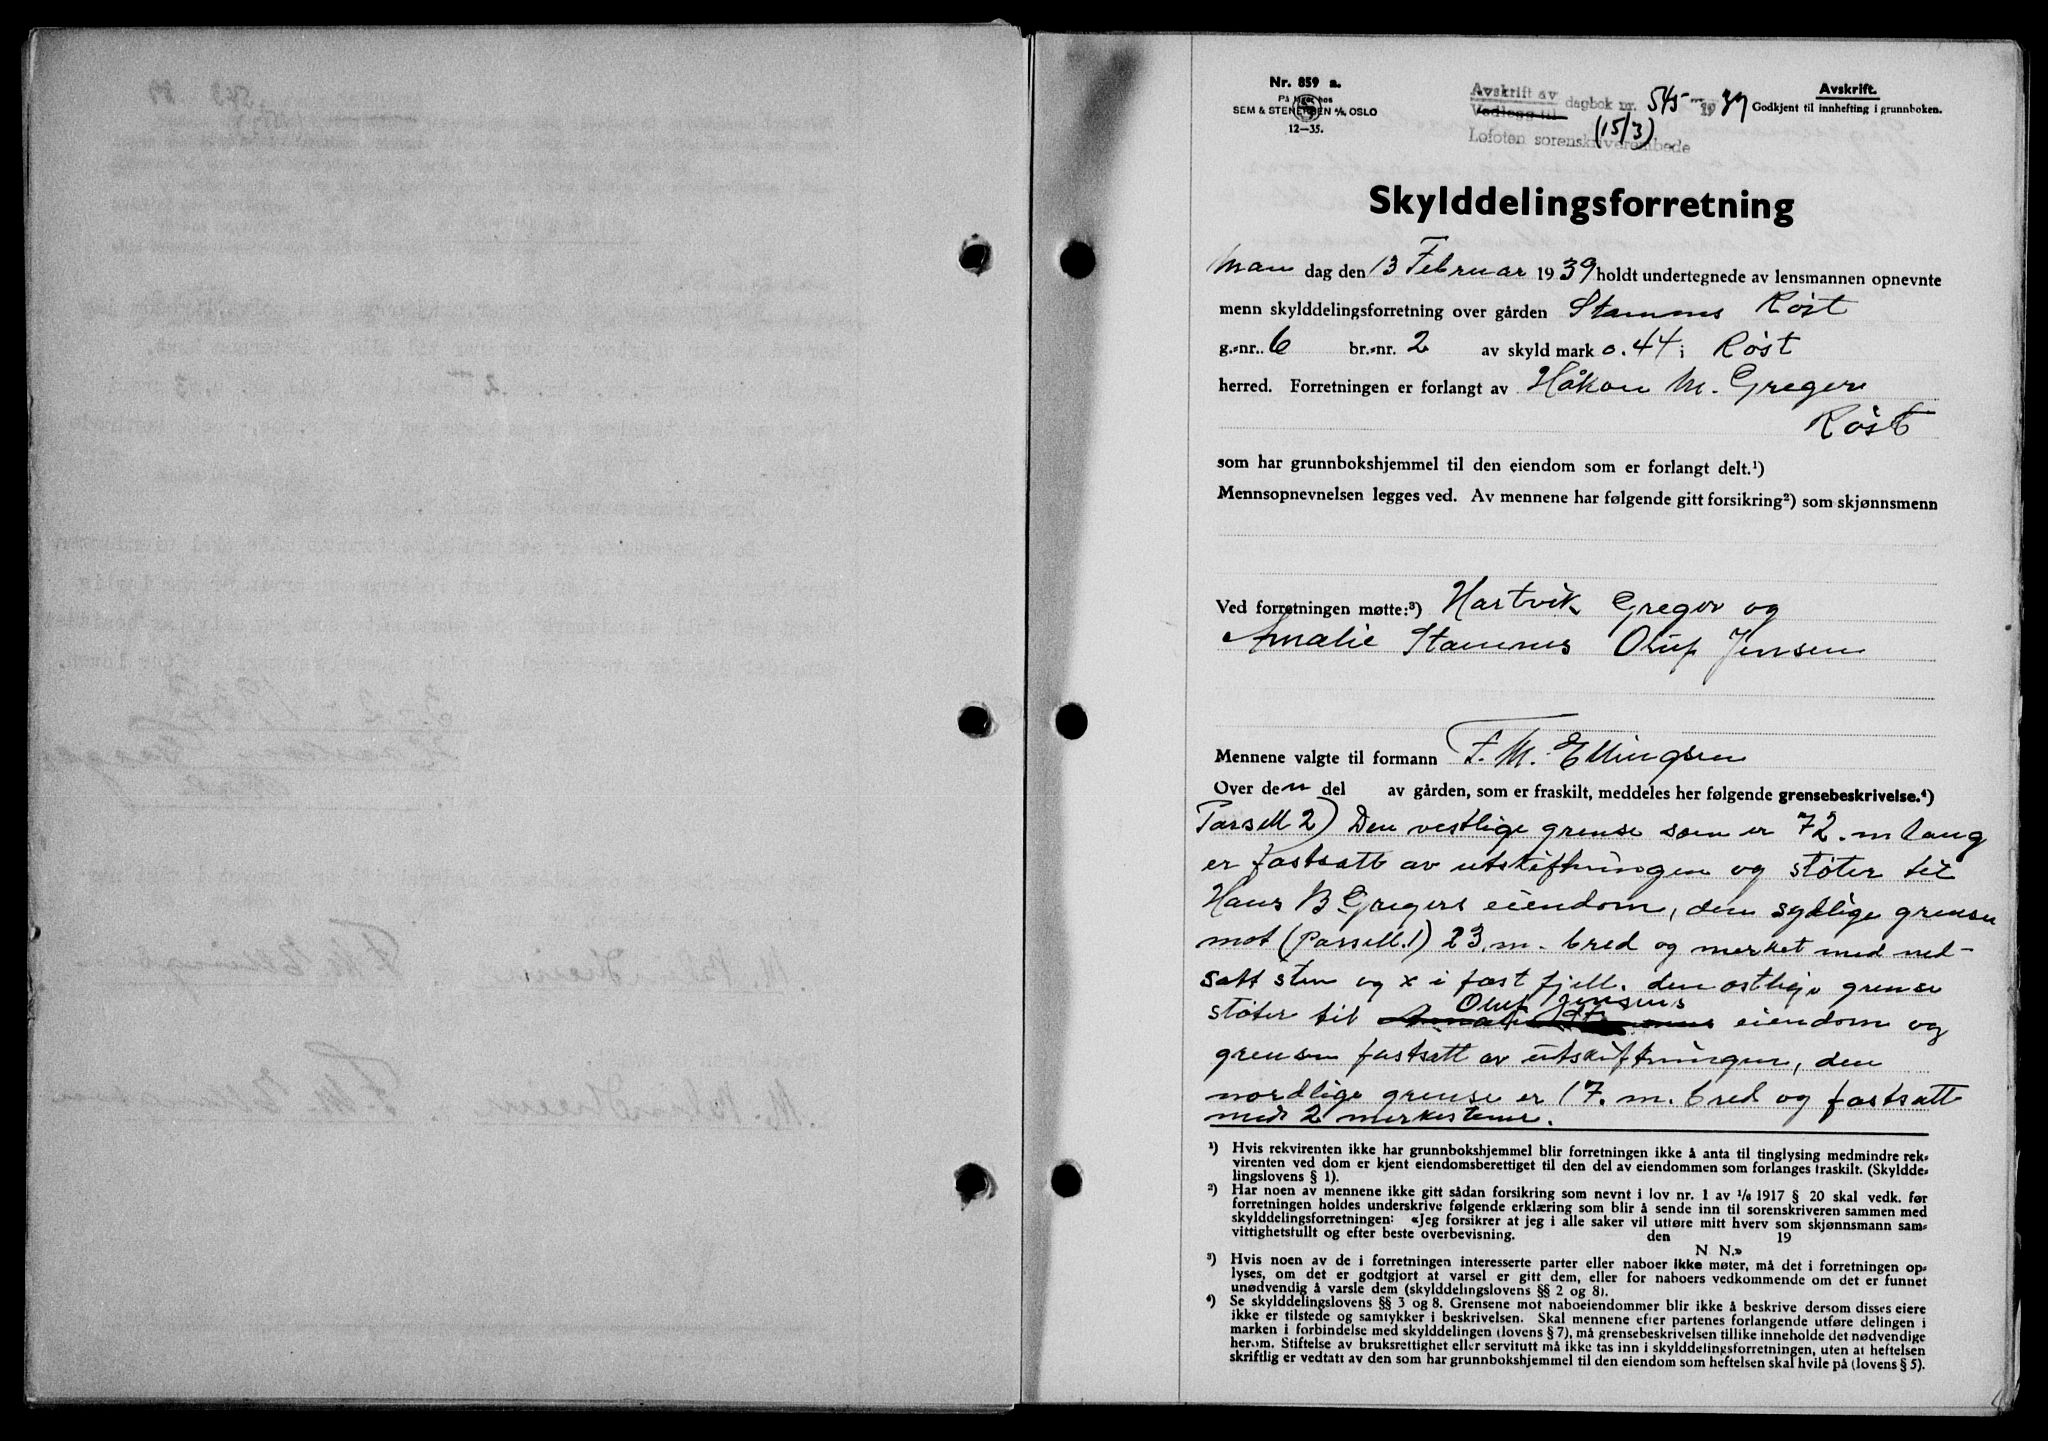 Nr. 859 a.
På lager hos
SEM & STENERSEN A/S OSLO
12-35.
Avskrift av
Vedlegg til dagbok nr. 545 19 39
(15/3)
Lofoten sorenskriverembede
Avskrift.
Godkjent til innhefting i grunnboken.
Skylddelingsforretning
Man dag den 13 Februar 1939 holdt undertegnede av lensmannen opnevnte
menn skylddelingsforretning over gården Stamnes Röst
g.-nr. 6 br.-nr. 2 av skyld mark 0.44 i Röst
herred. Forretningen er forlangt av Håkon M. Greger
Röst
som har grunnbokshjemmel til den eiendom som er forlangt delt.¹)
Mennsopnevnelsen legges ved. Av mennene har følgende gitt forsikring²) som skjønnsmenn
Ved forretningen møtte:³) Hartvik Greger og
Amalie Stamnes Oluf Jensen
Mennene valgte til formann F. M. Ellingsen
Over den del av gården, som er fraskilt, meddeles her følgende grensebeskrivelse.⁴)
Parsell 2) Den vestlige grense som er 72. m lang
er fastsatt av utskiftningen og støter til
Hans B Gregers eiendom, den sydlige grense
mot (Parsell.1) 23. m. bred og merket med ned-
satt sten og x i fast fjell. den østlige grense
støter til Oluf Jensens eiendom og
grensen fastsatt av utskiftningen, den
nordlige grense er 17. m. bred og fastsatt
med 2 merkestener.
¹) Hvis rekvirenten ikke har grunnbokshjemmel blir forretningen ikke å anta til tinglysing medmindre rek-
virenten ved dom er kjent eiendomsberettiget til den del av eiendommen som forlanges fraskilt. (Skyldde-
lingslovens § 1).
²) Har noen av mennene ikke gitt sådan forsikring som nevnt i lov nr. 1 av 1/6 1917 § 20 skal vedk. før
forretningen holdes underskrive følgende erklæring som blir å sende inn til sorenskriveren sammen med
skylddelingsforretningen: «Jeg forsikrer at jeg i alle saker vil utføre mitt hverv som skjønnsmann sam-
vittighetsfullt og efter beste overbevisning. den 19
N N.»
³) Hvis noen av de i forretningen interesserte parter eller naboer ikke møter, må det i forretningen op-
lyses, om det er godtgjort at varsel er gitt dem, eller for naboers vedkommende om det er funnet
unødvendig å varsle dem (skylddelingslovens §§ 2 og 8).
⁴) Se skylddelingslovens §§ 3 og 8. Grensene mot naboeiendommer blir ikke å beskrive dersom disses eiere
ikke er tilstede og samtykker i beskrivelsen. Skal mennene efter partenes forlangende utføre delingen i
marken i forbindelse med skylddelingen (lovens § 7), må grensebeskrivelsen tillike inneholde det nødvendige
herom. Stiftelse av bruksrettighet eller servitutt må ikke tas inn i skylddelingsforretningen, uten at heftelsen
skriftlig er vedtatt av den som har grunnbokshjemmel til den eiendom som heftelsen skal hvile på (lovens § 5).